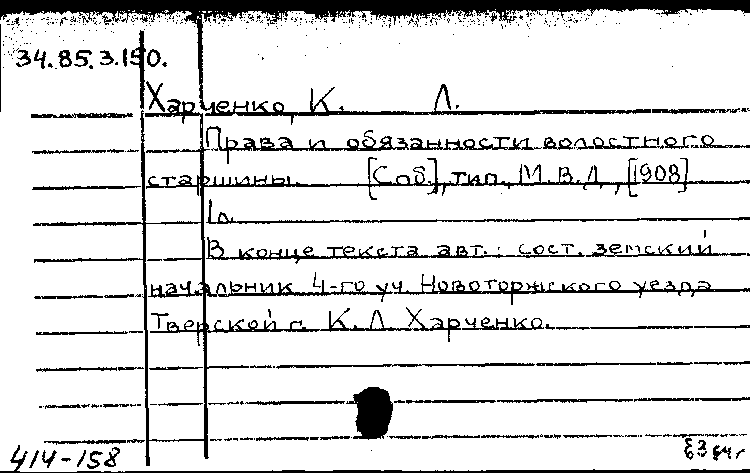 34.85.3.150.
Харченко, К. Л.
Права и обязанности волостного
старшины. [Спб.], тип. М.В.Д., [1908]
1л.
В конце текста авт.: сост. земский
начальник 4-го уч. Новоторжского уезда
Тверской г. К. Л. Харченко.
414-158